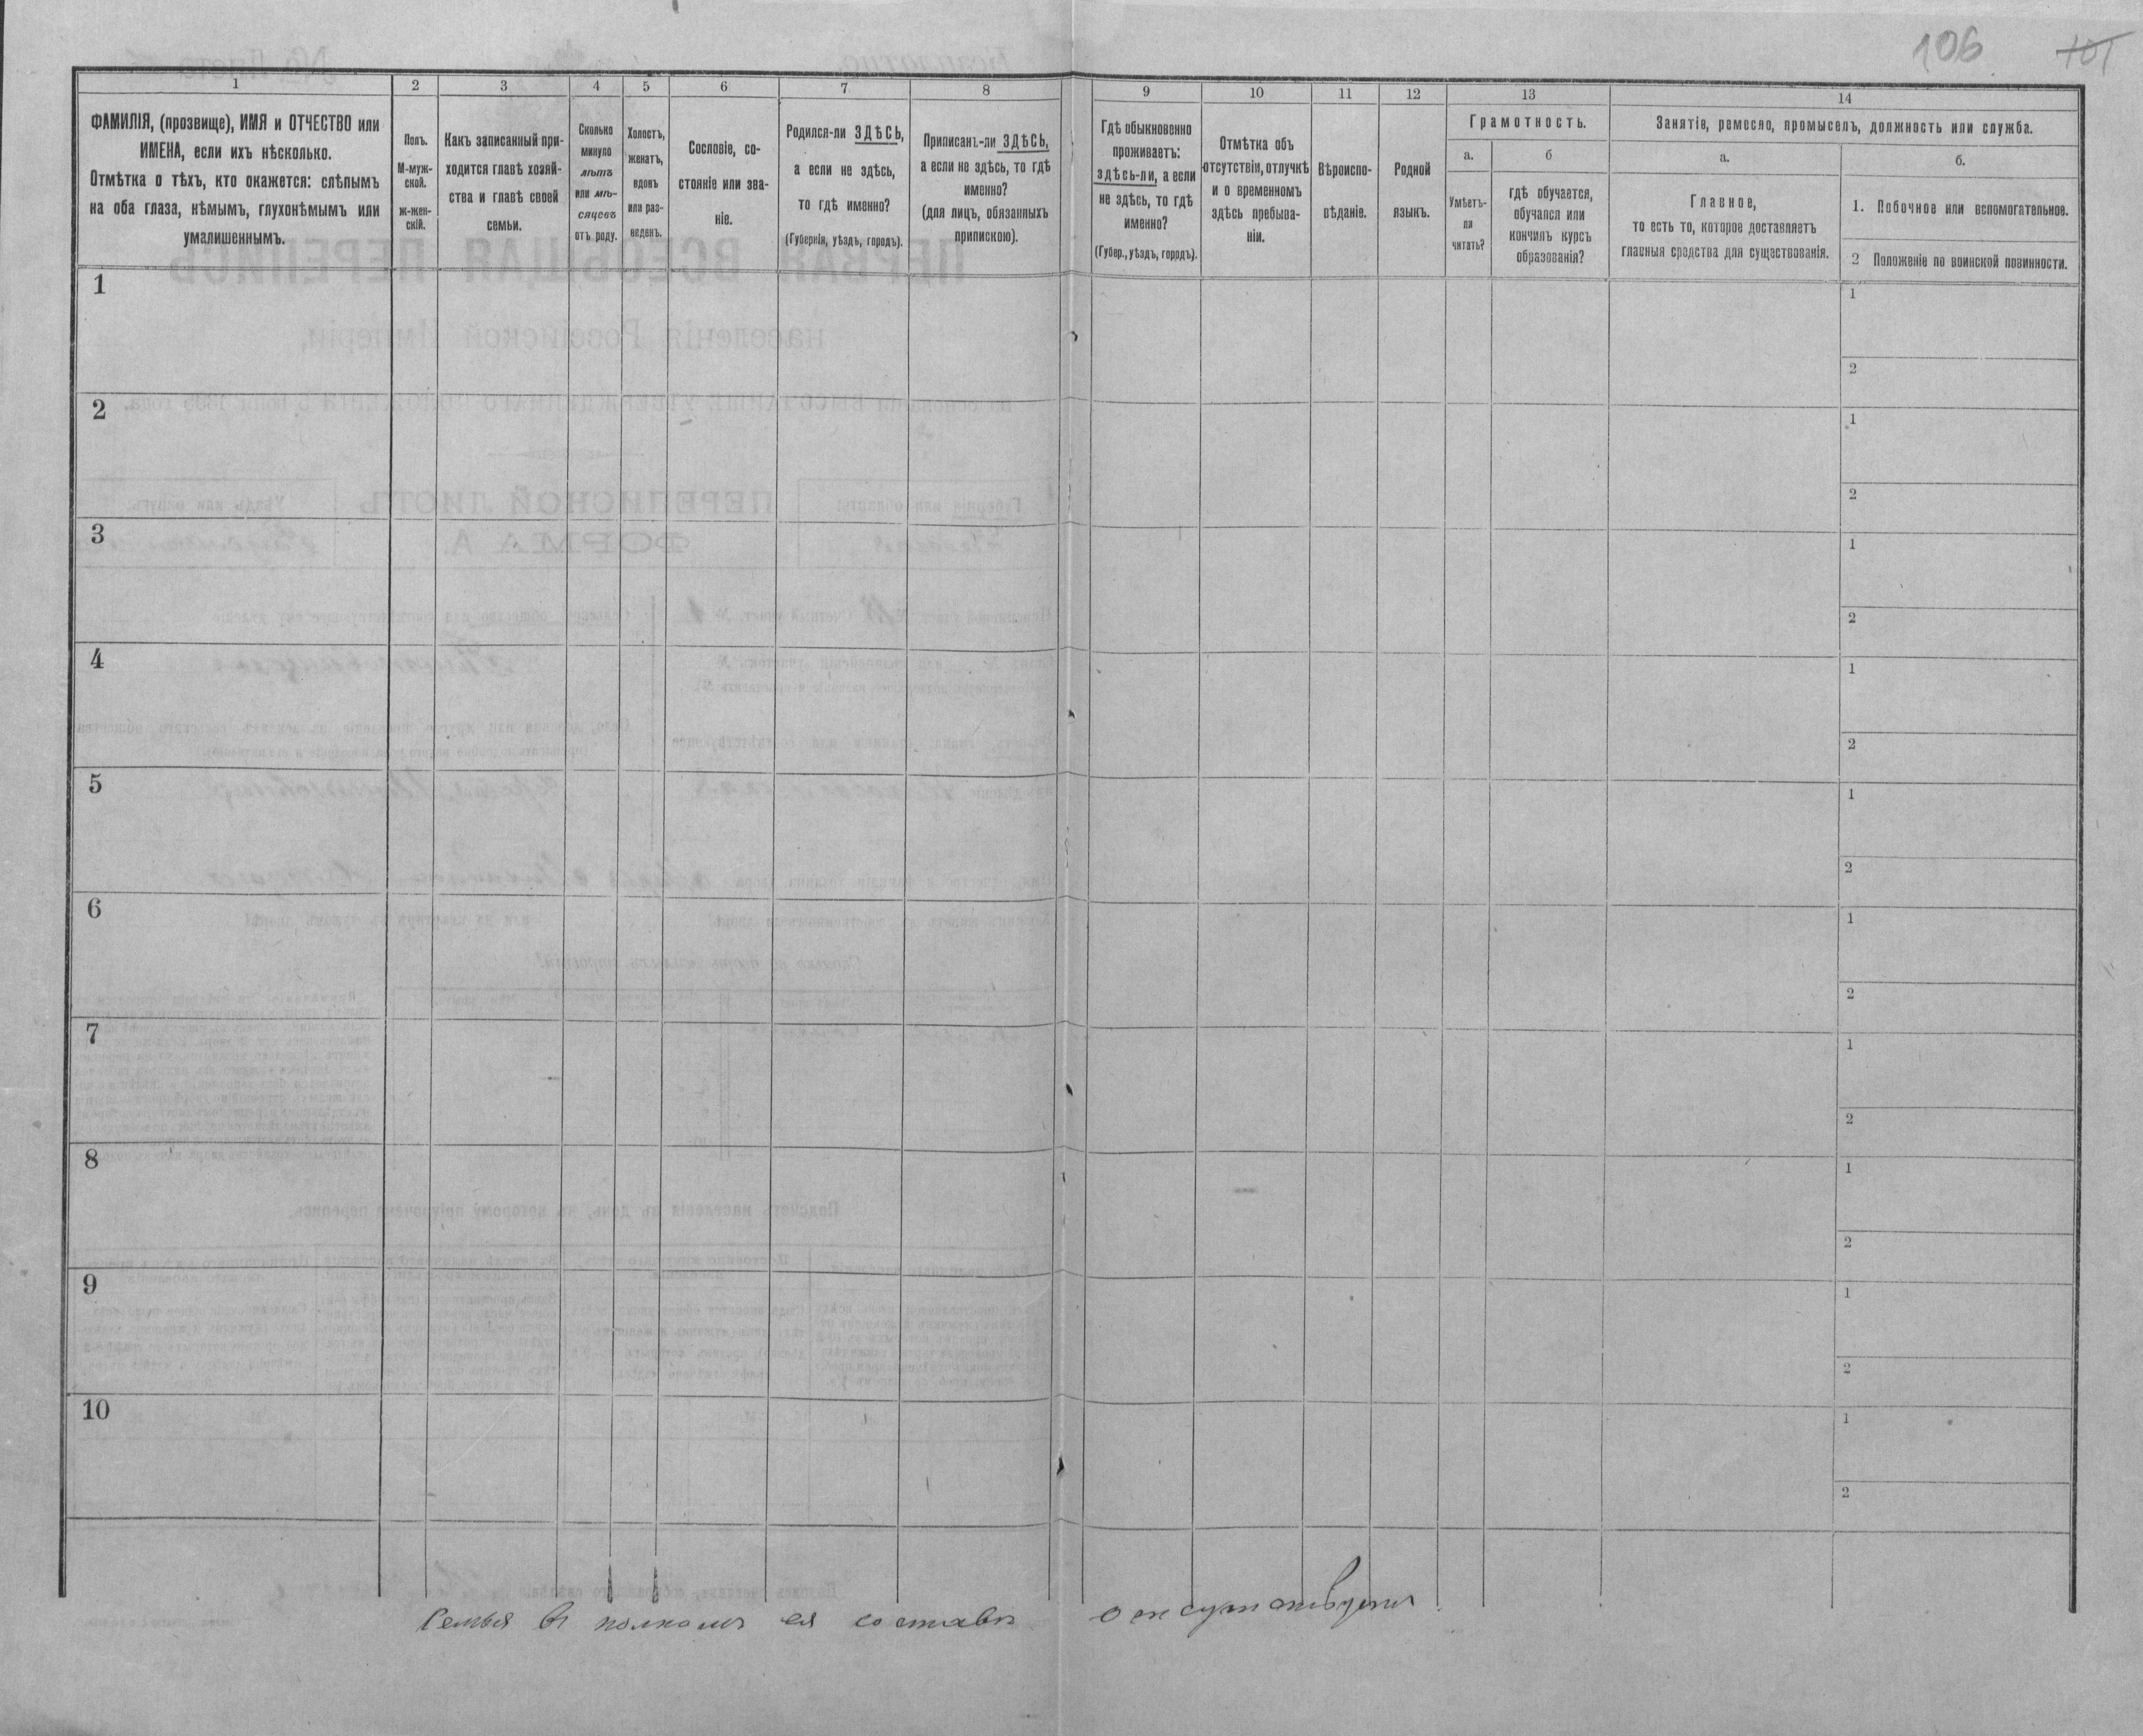 106 101
1 2 3 4 5 6 7 8 9 10 11 12 13 14
ФАМИЛІЯ, (прозвище), ИМЯ и ОТЧЕСТВО или
ИМЕНА, если ихъ нѣсколько.
Отмѣтка о тѣхъ, кто окажется: слѣпымъ
на оба глаза, нѣмымъ, глухонѣмымъ или
умалишеннымъ.
Полъ.
М-муж-
ской.
ж-жен-
скій.
Какъ записанный при-
ходится главѣ хозяй-
ства и главѣ своей
семьи.
Сколько
минуло
лѣтъ
или мѣ-
сяцевъ
отъ роду.
Холостъ,
женатъ,
вдовъ
или раз-
веденъ.
Сословіе, со-
стояніе или зва-
ніе.
Родился-ли ЗДѢСЬ,
а если не здѣсь,
то гдѣ именно?
(Губернія, уѣздъ, городъ).
Приписанъ-ли ЗДѢСЬ,
а если не здѣсь, то гдѣ
именно?
(для лицъ, обязанныхъ
припискою).
Гдѣ обыкновенно
проживаетъ:
здѣсь-ли, а если
не здѣсь, то гдѣ
именно?
(Губер., уѣздъ, городъ).
Отмѣтка объ
отсутствіи, отлучкѣ
и о временномъ
здѣсь пребыва-
ніи.
Вѣроиспо-
вѣданіе.
Родной
языкъ.
Грамотность.
а.
Умѣетъ-
ли
читать?
б
гдѣ обучается,
обучался или
кончилъ курсъ
образованія?
Занятіе, ремесло, промыселъ, должность или служба.
а.
Главное,
то есть то, которое доставляетъ
главныя средства для существованія.
б.
1. Побочное или вспомогательное.
2 Положеніе по воинской повинности.
1 1
2
2 1
2
3 1
2
4 1
2
5 1
2
6 1
2
7 1
2
8 1
2
9 1
2
10 1
2
Семья въ полномъ ея составѣ отсутствуетъ